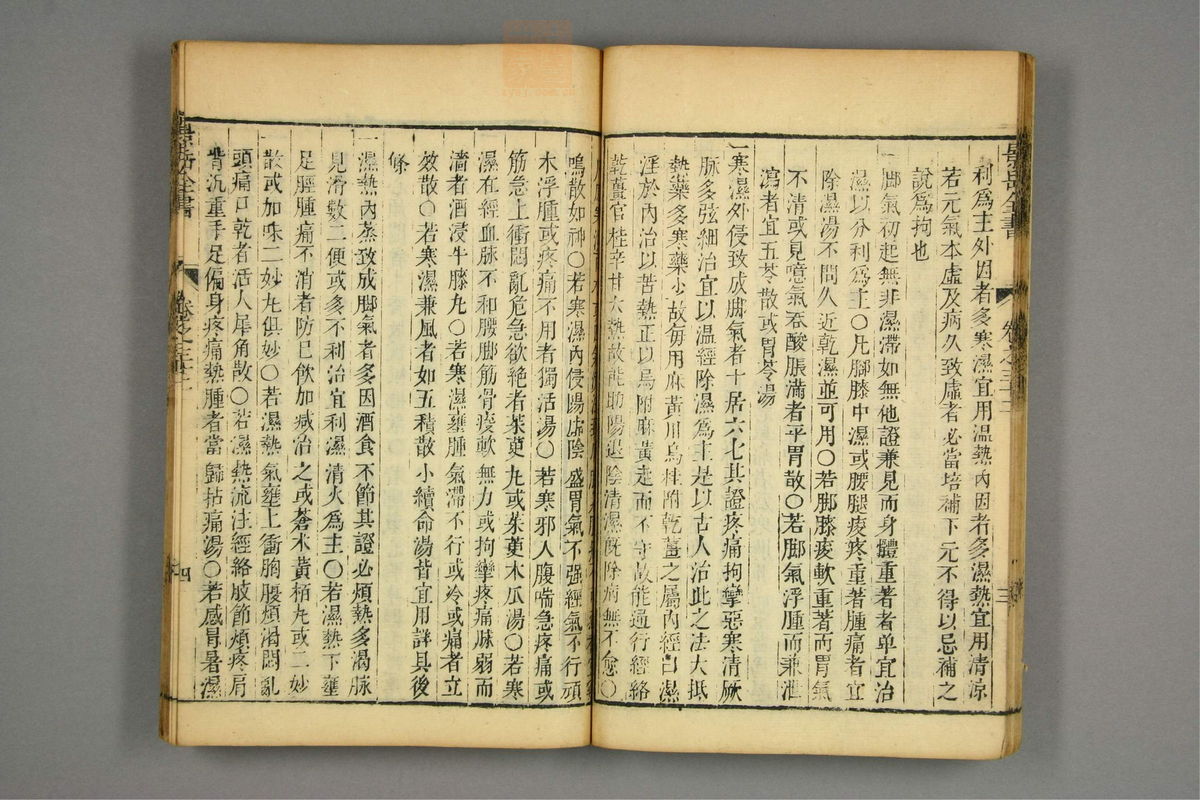 利爲主外因者多寒濕宜用温熱内因者多濕熱宜用清凉
若元氣本虚及病久致虚者必當培補下元不得以忌補之
說爲拘也
脚氣初起無非濕滯如無他證兼見而身體重著者单宜治
濕以分利爲主〇凡脚膝中濕或腰腿痠疼重著腫痛者宜
除濕湯不問久近乾濕並可用〇若脚膝痠軟重著而胃氣
不清或見噫氣吞酸脹滿者平胃散〇若脚氣浮腫而兼泄
瀉者宜五苓散或胃苓湯
一寒濕外侵致成脚氣者十居六七其證疼痛拘攣惡寒清厥
脉多弦細治宜以温經除濕爲主是以古人治此之法大抵
熱藥多寒藥少故每用麻黃川烏桂附乾薑之屬内經曰濕
淫於内治以苦熱正以烏附麻黃走而不守故能通行經絡
乾薑官桂辛甘大熱故能助陽退陰清濕既除病無不愈〇
鳴散如神〇若寒濕内侵陽虚陰盛胃氣不强經氣不行頑
木浮腫或疼痛不用者獨活湯〇若寒邪入腹喘急疼痛或
筋急上衝悶亂危急欲絶者茱萸丸或茱萸木瓜湯〇若寒
濕在經血脉不和腰脚筋骨痠軟無力或拘攣疼痛脉弱而
濇者酒浸牛膝丸〇若寒濕壅腫氣滯不行或冷或痛者立
效散〇若寒濕兼風者如五積散小續命湯皆宜用詳具後
條
一濕熱内蒸致成脚氣者多因酒食不節其證必煩熱多渴脉
見滑數二便或多不利治宜利濕清火爲主〇若濕熱下壅
足脛腫痛不消者防巳飲加減治之或蒼朮黃栢丸或二妙
散或加味二妙丸俱妙〇若濕熱氣壅上衝胸腹煩渴悶亂
頭痛口乾者活人犀角散〇若濕熱流注經絡肢節煩疼肩
背沉重手足徧身疼痛熱腫者當歸拈痛湯〇若感冒暑濕
景岳全書
卷之三十二
三
四